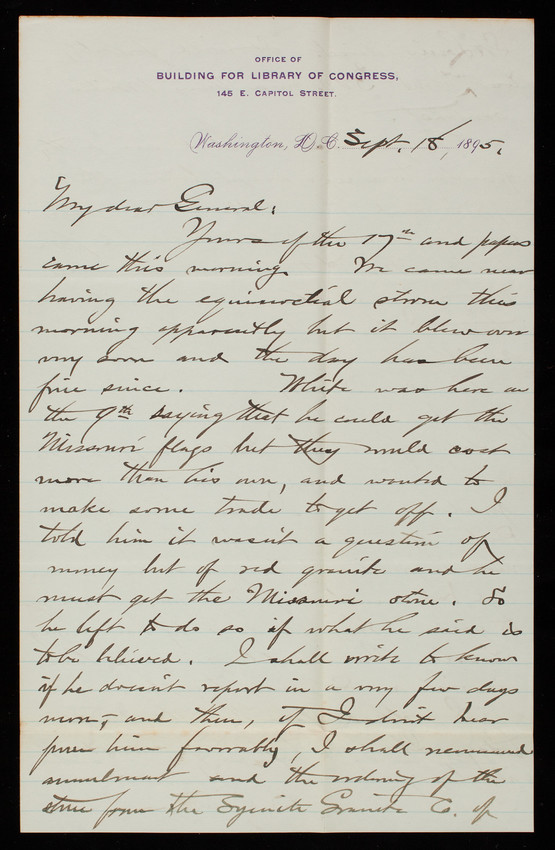 OFFICE OF
BUILDING FOR LIBRARY OF CONGRESS,
145 E. CAPITOL STREET.
Washington, D.C. Sept. 18, 1895.
My dear General,
Yours of the 17th and papers
came this morning. We came near
having the equinoctial storm this
morning apparently but it blew over
very soon and the day has been
fine since. White was here on
the 9th saying that he could get the
Missouri flags but they would cost
more than his own, and wanted to
make some trade to get off. I
told him it wasn't a question of
money but of red granite and he
must get the Missouri stone. So
he left to do so if what he said is
to be believed. I shall write to know
if he doesn't report in a very few days
more, and then, if I don't hear
from him favorably, I shall recommend
annulment and the ordering of the
stone from the Syenite Granite Co. of